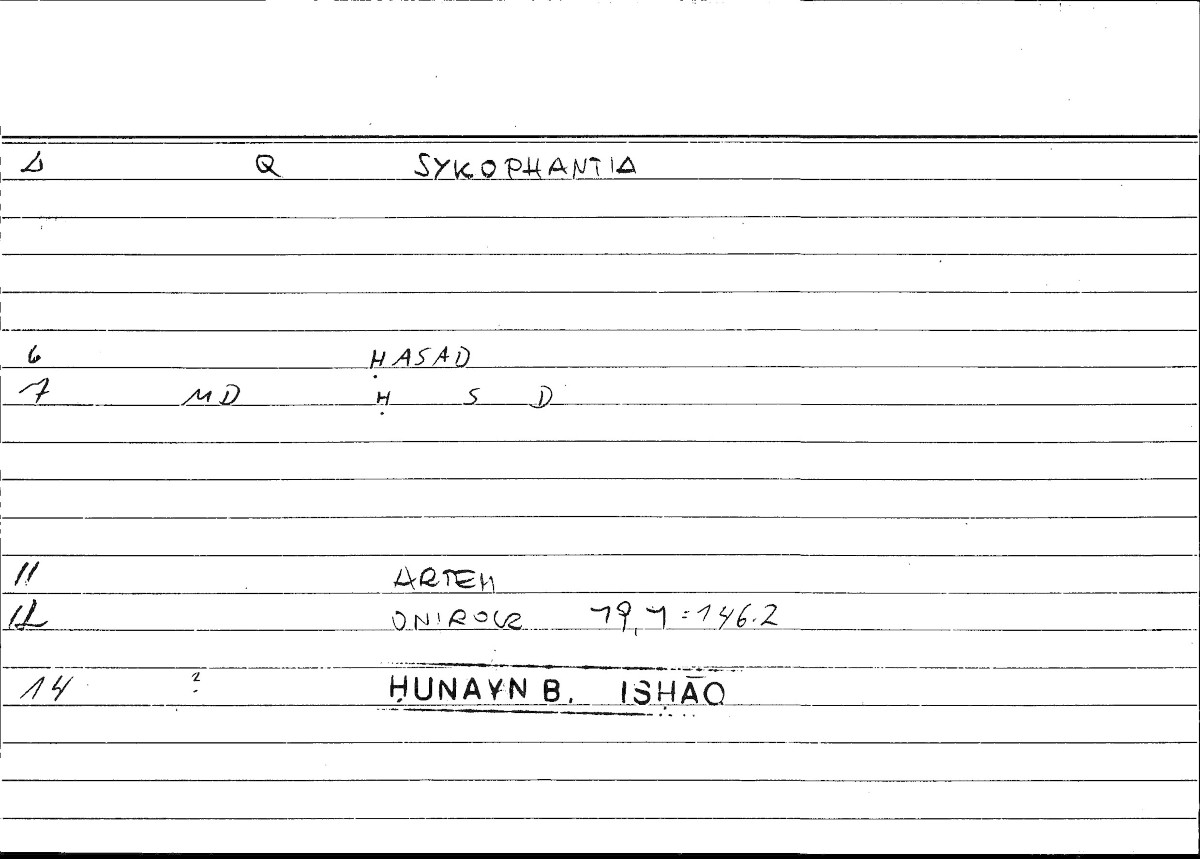 1 Q SYKOPHANTIA
6 ḤASAD
7 MD Ḥ S D
11 ARTEM
12 ONIROCR 19,1 = 146.2
14 ? ḤUNAYN B. ISḤĀQ